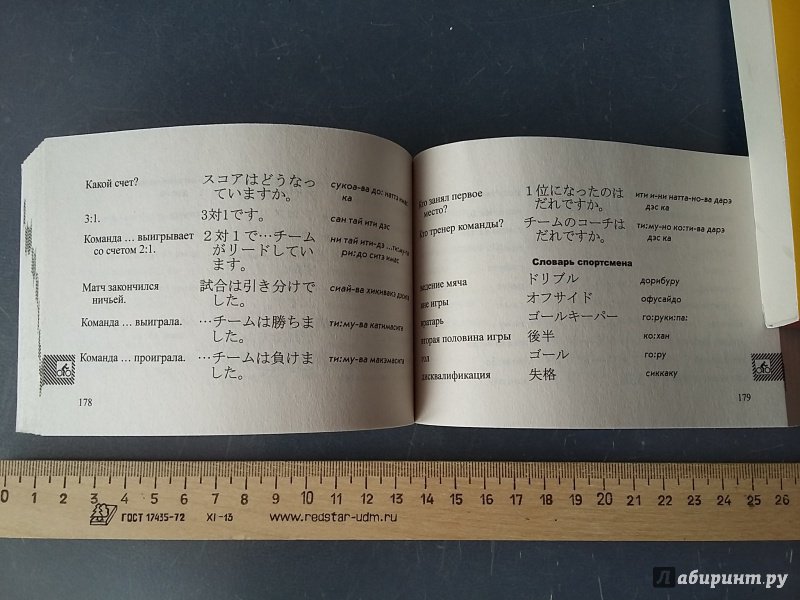 Какой счет?
スコアはどうなっ
ていますか。
сукоа-ва до: натта имас
ка
3:1.
3対1です。
сан тай ити дэс
Команда ... выигрывает
со счетом 2:1.
２対１で…チーム
がリードしてい
ます。
ни тай ити-дэ ...ти:му-га
ри:до ситэ имас
Матч закончился
ничьей.
試合は引き分けで
した。
сиай-ва хикивакэ
Команда ... выиграла.
…チームは勝ちま
した。
ти:му-ва катимасита
Команда ... проиграла.
…チームは負けま
した。
ти:му-ва макэмасита
178
Кто занял первое
место?
１位になったのは
だれですか。
ити и-ни натта-но-ва дарэ
дэс ка
Кто тренер команды?
チームのコーチは
だれですか。
ти:му-но ко:ти-ва дарэ
дэс ка
Словарь спортсмена
ведение мяча
ドリブル
дорибуру
вне игры
オフサイド
офусайдо
вратарь
ゴールキーパー
го:руки:па:
вторая половина игры
後半
ко:хан
гол
ゴール
го:ру
дисквалификация
失格
сиккаку
179
0 1 2 3 4 5 6 7 8 9 10 11 12 13 14 15 16 17 18 19 20 21 22 23 24 25 26
ГОСТ 17435-72 XI-13 www.redstar-udm.ru
Лабиринт.ру